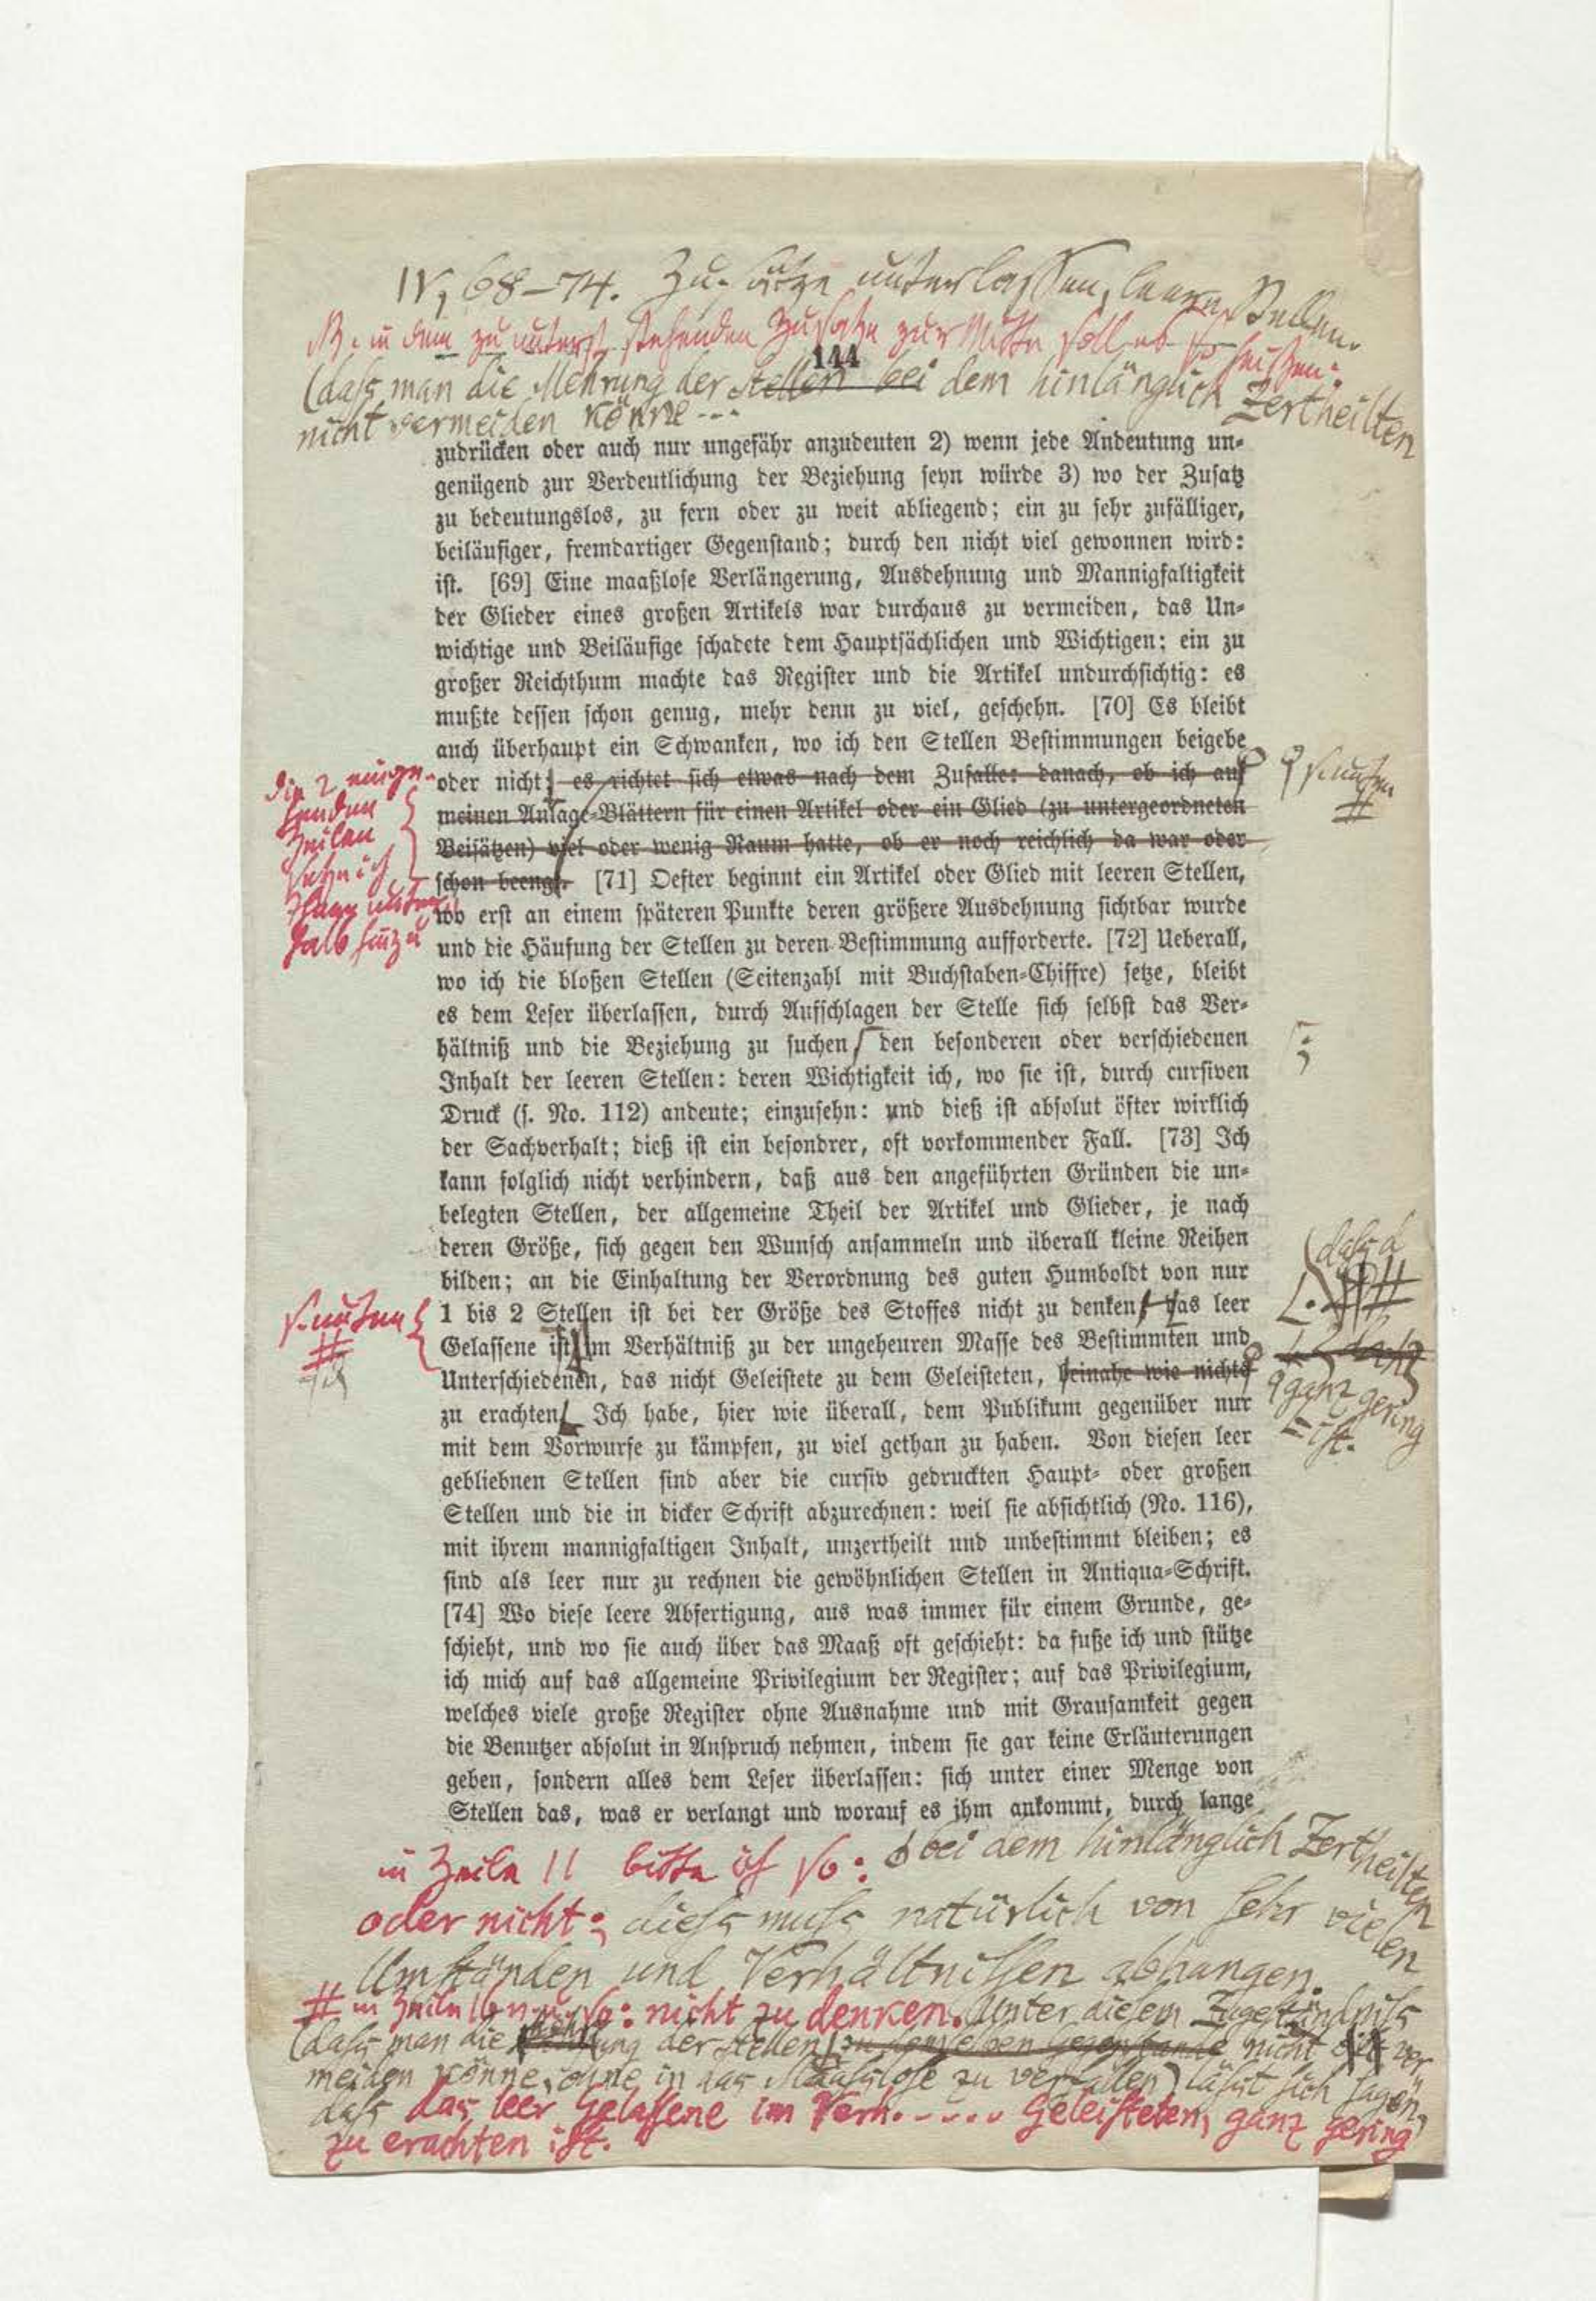 IV, 68–74. Zu-sätze unterlassen, leere Stellen.
NB. in dem zu unterst stehenden Zusatze zur Mitte soll es so heißen:
144
(daſs man die Mehrung der Stellen bei dem hinlänglich Zertheilten
nicht vermeiden könne ---
zudrücken oder auch nur ungefähr anzudeuten 2) wenn jede Andeutung un-
genügend zur Verdeutlichung der Beziehung seyn würde 3) wo der Zusatz
zu bedeutungslos, zu fern oder zu weit abliegend; ein zu sehr zufälliger,
beiläufiger, fremdartiger Gegenstand; durch den nicht viel gewonnen wird:
ist. [69] Eine maaßlose Verlängerung, Ausdehnung und Mannigfaltigkeit
der Glieder eines großen Artikels war durchaus zu vermeiden, das Un-
wichtige und Beiläufige schadete dem Hauptsächlichen und Wichtigen; ein zu
großer Reichthum machte das Register und die Artikel undurchsichtig: es
mußte dessen schon genug, mehr denn zu viel, geschehn. [70] Es bleibt
auch überhaupt ein Schwanken, wo ich den Stellen Bestimmungen beigebe
oder nicht: es richtet sich etwas nach dem Zufalle: danach, ob ich auf
meinen Anlage-Blättern für einen Artikel oder ein Glied (zu untergeordneten
Beisätzen) viel oder wenig Raum hatte, ob er noch reichlich da war oder
schon beengt. [71] Oefter beginnt ein Artikel oder Glied mit leeren Stellen,
wo erst an einem späteren Punkte deren größere Ausdehnung sichtbar wurde
und die Häufung der Stellen zu deren Bestimmung aufforderte. [72] Ueberall,
wo ich die bloßen Stellen (Seitenzahl mit Buchstaben-Chiffre) setze, bleibt
es dem Leser überlassen, durch Aufschlagen der Stelle sich selbst das Ver-
hältniß und die Beziehung zu suchen den besonderen oder verschiedenen
Inhalt der leeren Stellen: deren Wichtigkeit ich, wo sie ist, durch cursiven
Druck (s. No. 112) andeute; einzusehn: und dieß ist absolut öfter wirklich
der Sachverhalt; dieß ist ein besondrer, oft vorkommender Fall. [73] Ich
kann folglich nicht verhindern, daß aus den angeführten Gründen die un-
belegten Stellen, der allgemeine Theil der Artikel und Glieder, je nach
deren Größe, sich gegen den Wunsch ansammeln und überall kleine Reihen
bilden; an die Einhaltung der Verordnung des guten Humboldt von nur
1 bis 2 Stellen ist bei der Größe des Stoffes nicht zu denken, das leer
Gelassene ist im Verhältniß zu der ungeheuren Masse des Bestimmten und
Unterschiedenen, das nicht Geleistete zu dem Geleisteten, beinahe wie nichts
zu erachten. Ich habe, hier wie überall, dem Publikum gegenüber nur
mit dem Vorwurfe zu kämpfen, zu viel gethan zu haben. Von diesen leer
gebliebnen Stellen sind aber die cursiv gedruckten Haupt- oder großen
Stellen und die in dicker Schrift abzurechnen: weil sie absichtlich (No. 116),
mit ihrem mannigfaltigen Inhalt, unzertheilt und unbestimmt bleiben; es
sind als leer nur zu rechnen die gewöhnlichen Stellen in Antiqua-Schrift.
[74] Wo diese leere Abfertigung, aus was immer für einem Grunde, ge-
schieht, und wo sie auch über das Maaß oft geschieht: da fuße ich und stütze
ich mich auf das allgemeine Privilegium der Register; auf das Privilegium,
welches viele große Register ohne Ausnahme und mit Grausamkeit gegen
die Benutzer absolut in Anspruch nehmen, indem sie gar keine Erläuterungen
geben, sondern alles dem Leser überlassen: sich unter einer Menge von
Stellen das, was er verlangt und worauf es ihm ankommt, durch lange
die 2
Zeilen
setze ich
s. unten
#
s. unten
#
;
ganz gering
ist.
bei dem hinlänglich Zertheilten
in Zeile 11 bitte ich so:
oder nicht: dieſs muſs natürlich von sehr vielen
Umständen und Verhältnissen abhangen.
# in Zeile so: nicht zu denken. Unter diesem Zugeständniſs
(daſs man die der Stellen zu demselben Gegenstande nicht ver-
meiden könne, ohne in das Maaſslose zu verfallen) läſst sich sagen,
daſs das leer Gelassene im Verh. - - - - - Geleisteten, ganz gering
zu erachten ist.